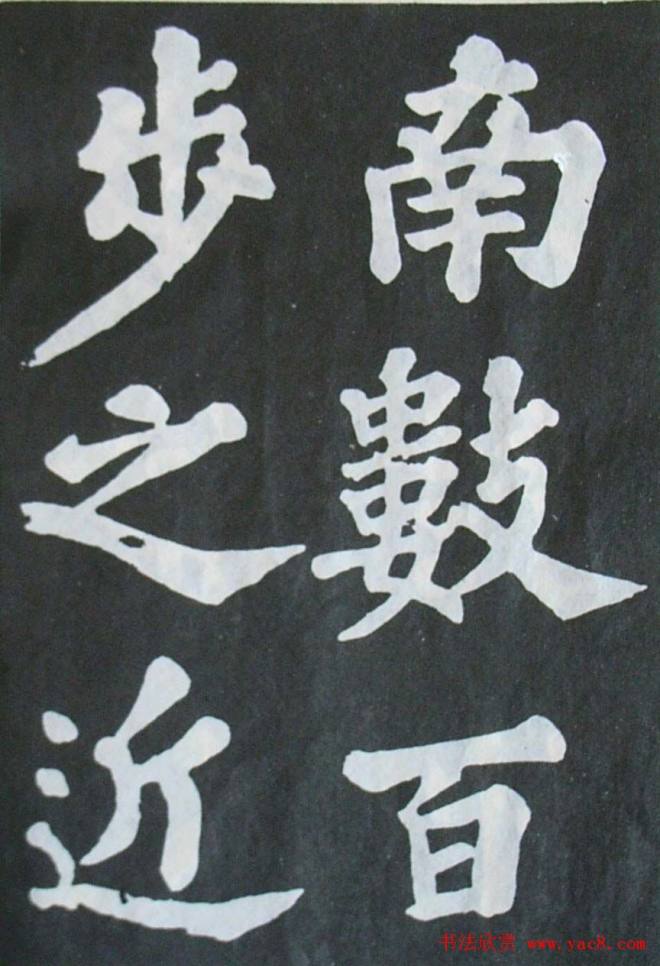 南數百
步之近
书法欣赏 www.yac8.com